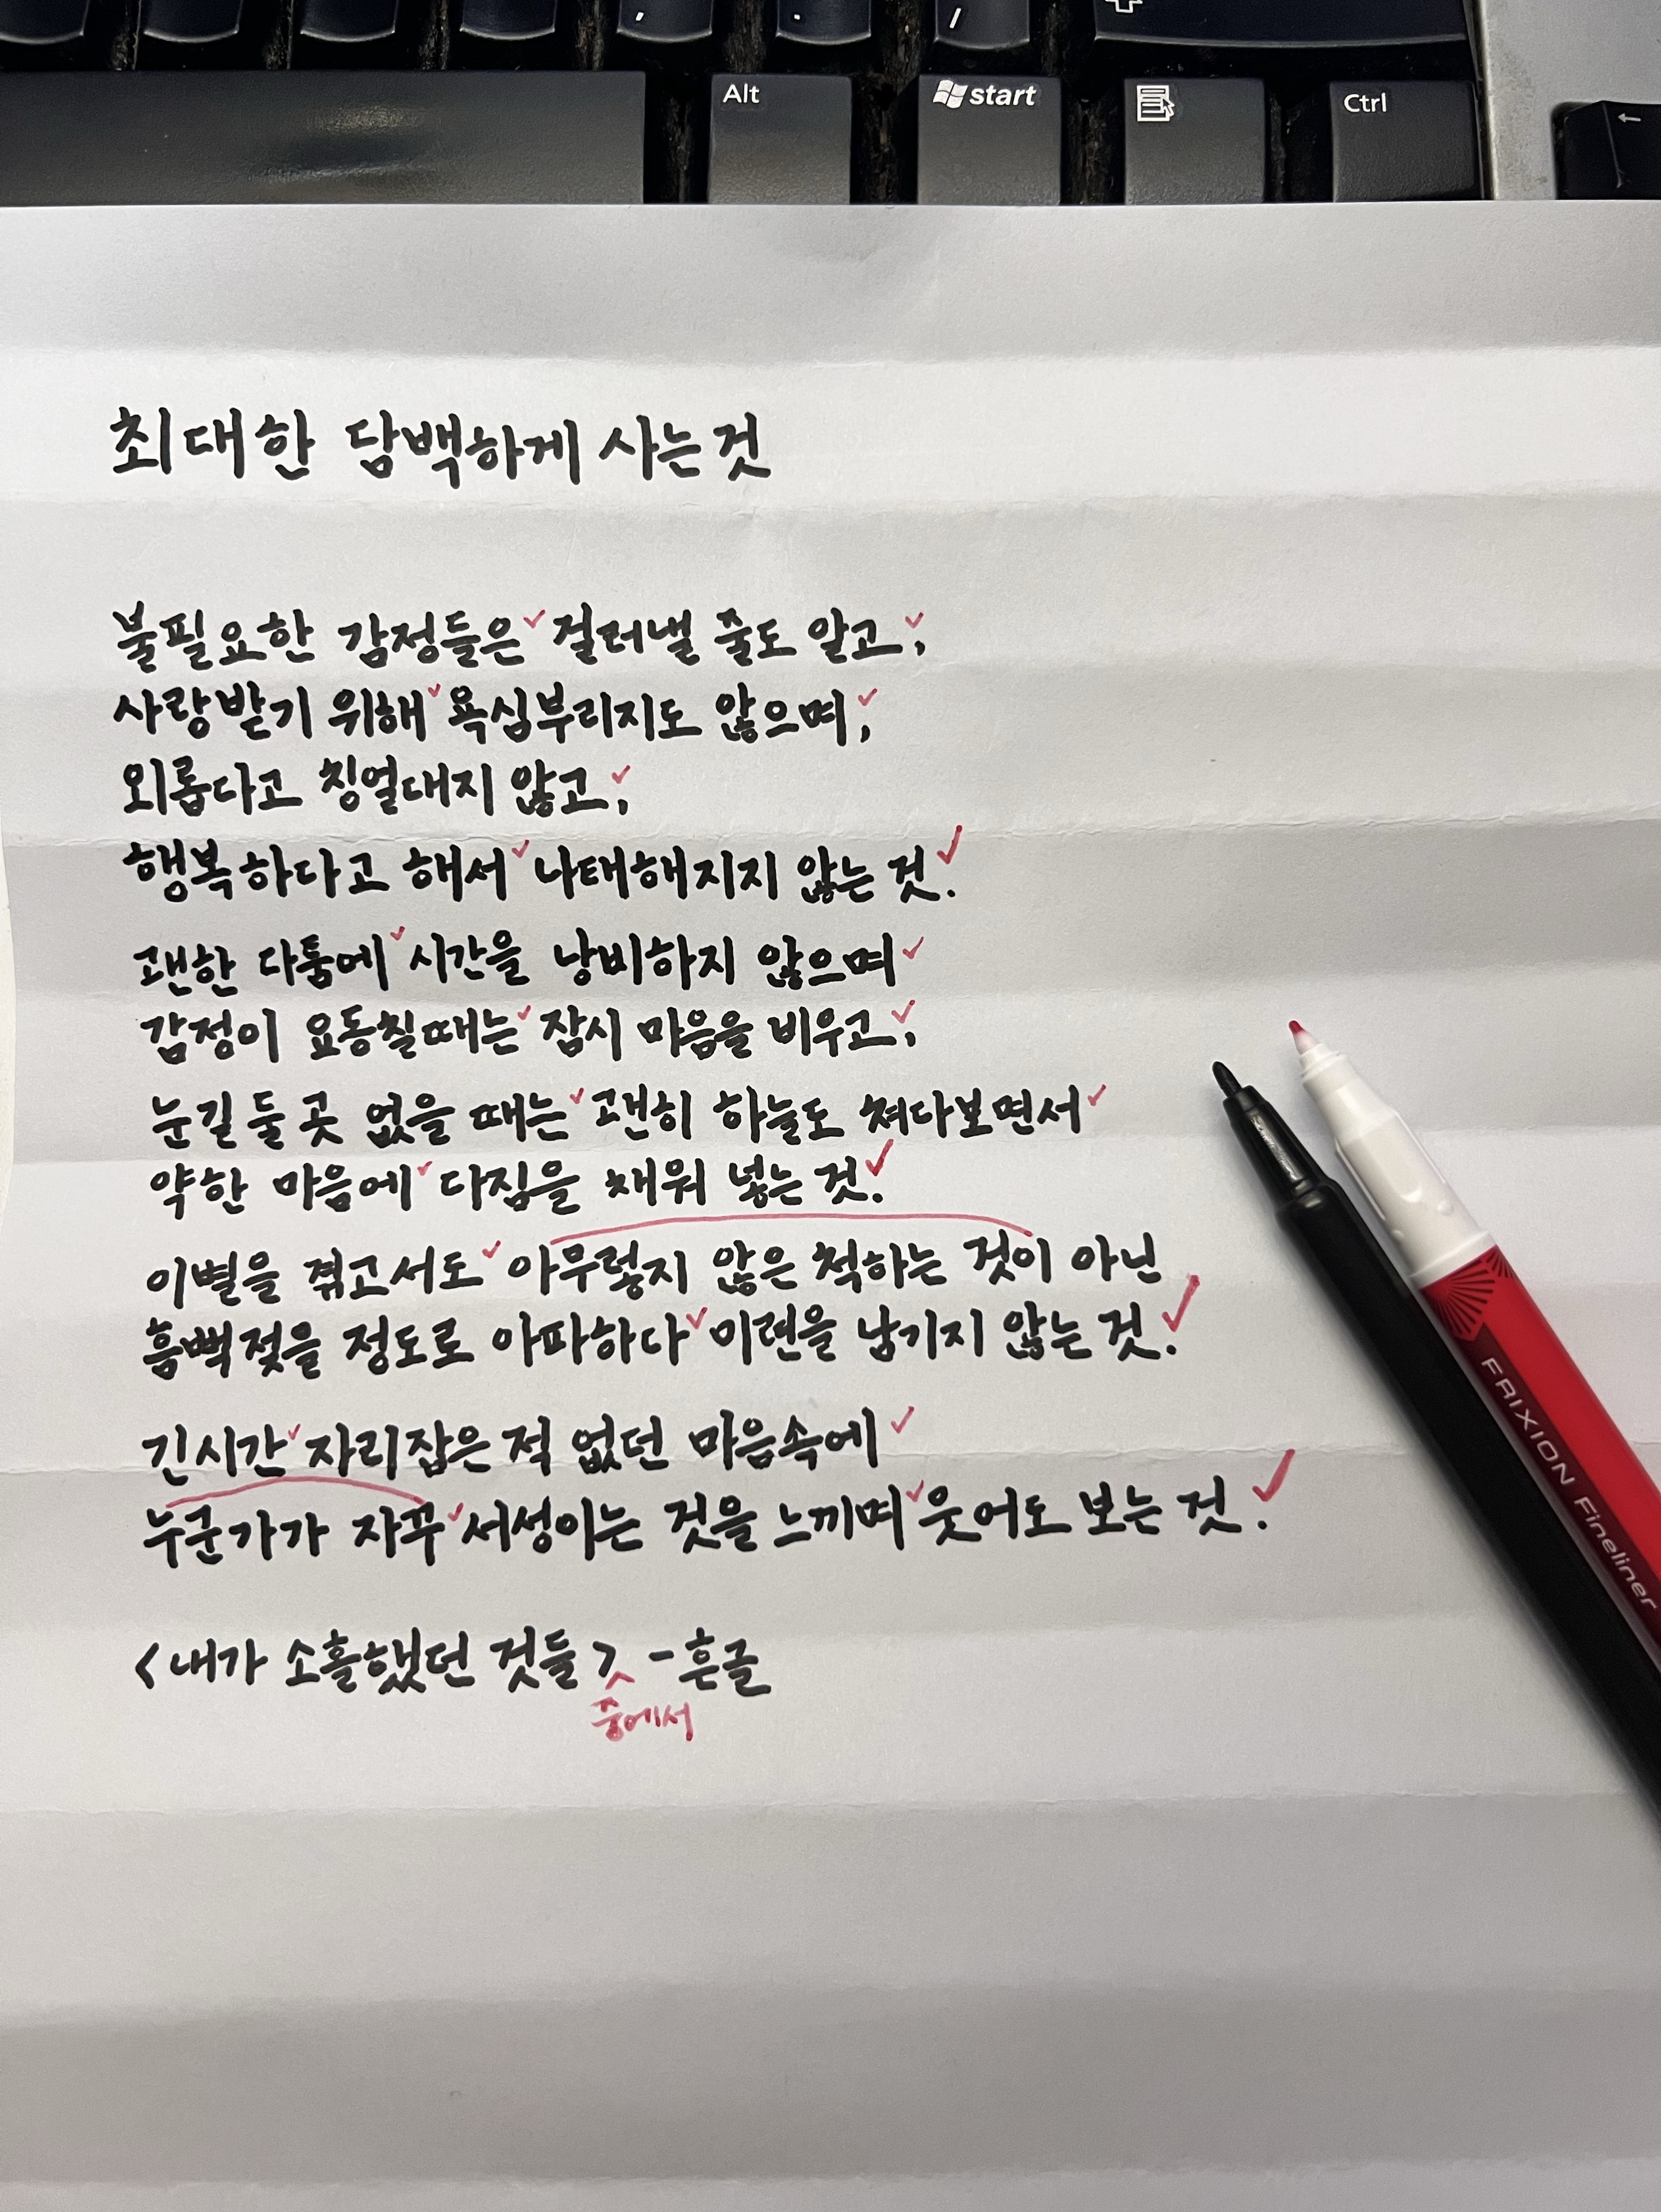 ,
.
/
Alt
start
Ctrl
←
최대한 담백하게 사는것
불필요한 감정들은 걸러낼 줄도 알고,
사랑받기 위해 욕심부리지도 않으며,
외롭다고 칭얼대지 않고,
행복하다고 해서 나태해지지 않는 것.
괜한 다툼에 시간을 낭비하지 않으며
감정이 요동칠때는 잠시 마음을 비우고,
눈길 둘 곳 없을 때는 괜히 하늘도 쳐다보면서
약한 마음에 다짐을 채워 넣는 것.
이별을 겪고서도 아무렇지 않은 척하는 것이 아닌
흠뻑젖을 정도로 아파하다 미련을 남기지 않는 것.
긴시간 자리잡은적 없던 마음속에
누군가가 자꾸 서성이는 것을 느끼며 웃어도 보는 것.
<내가 소홀했던 것들> - 흔글
중에서
FRIXION Fineliner